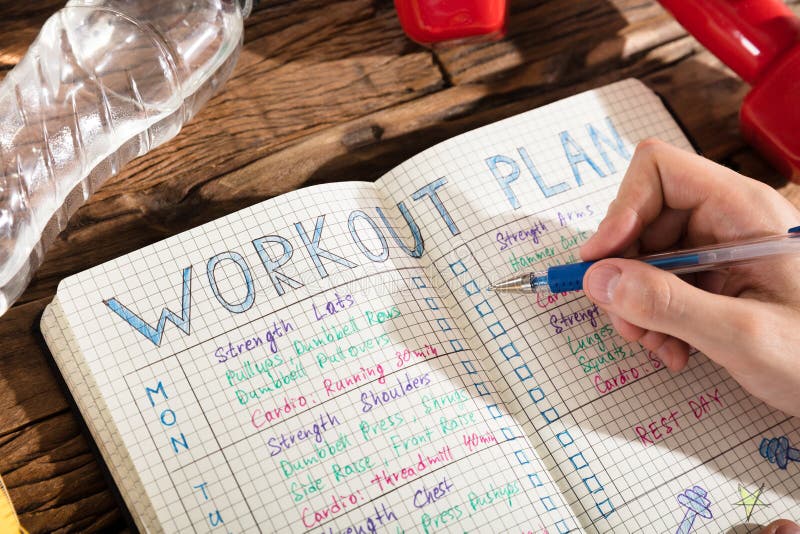 WORKOUT PLAN
MON
Strength Lats
Pullups, Dumbbell Rows
Dumbbell Pullovers
Cardio: Running 30min
TU
Strength Shoulders
Dumbbell Press, Shrugs
Side Raise, Front Raise
Cardio: threadmill 40min
Strength Chest
Press Pushups
Strength Arms
Hammer Curls
Cardio
Lunges
Squats
Cardio:
REST DAY